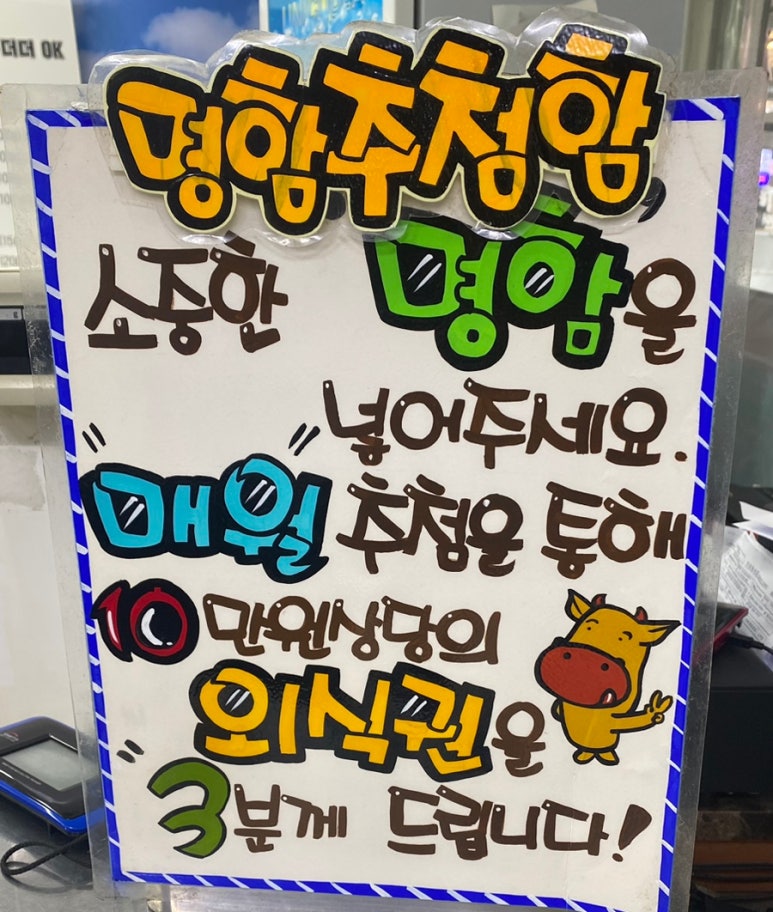 더더 OK
명함추첨함
소중한 명함을
넣어주세요.
매월 추첨을 통해
10만원상당의
외식권을
3분께 드립니다!